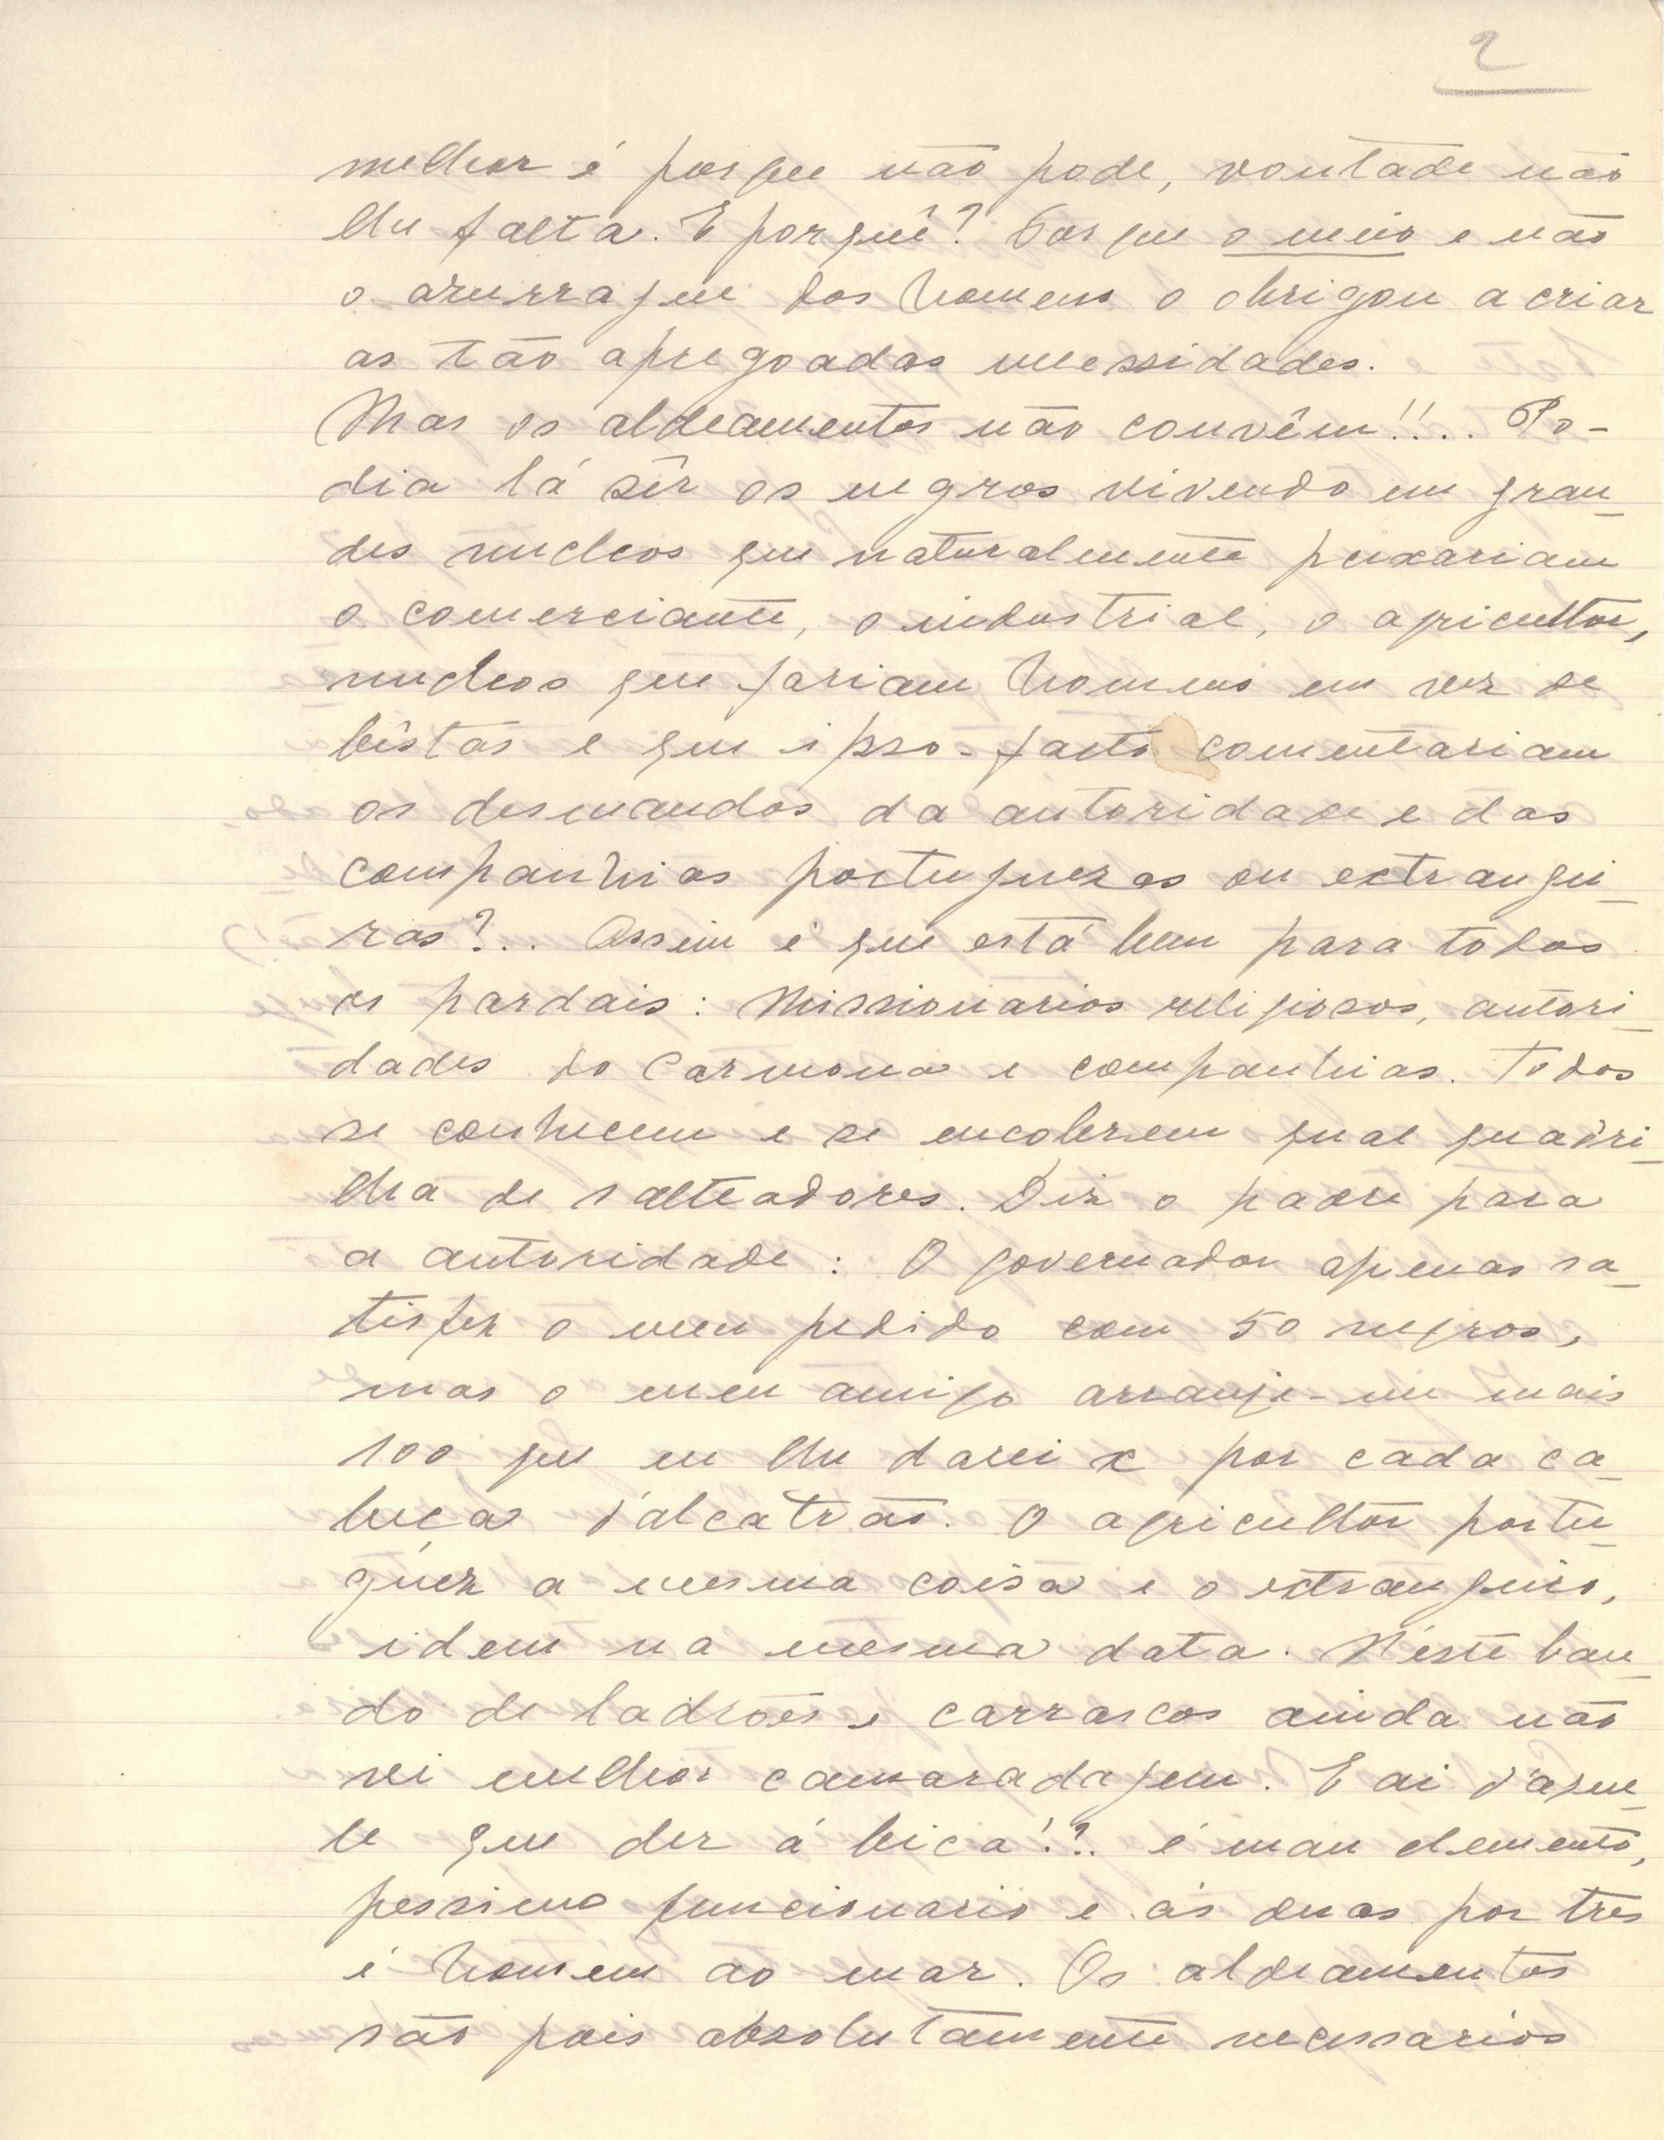 2
melhor é porque não pode, vontade não
lhe falta. E porquê? Porque o meio e não
o azurrague dos homens o obrigou a criar
as tão apregoadas necessidades.
Mas os aldeamentos não convêm!!.. Po-
dia lá sêr os negros vivendo em gran_
des nucleos que naturalmente puxariam
o comerciante, o industrial, o agricultor,
nucleos que fariam homens em vez de
bêstas e que ipso-facto comentariam
os desmandos da autoridade e das
companhias portuguezas ou extrangei_
ras?.. Assim é que está bem para todos
os pardais: Missionarios religiosos, autori_
dades do Carmona e companhias. Todos
se conhecem e se encobrem qual quadri_
lha de salteadores. Diz o padre para
a autoridade: O governador apenas sa_
tisfez o meu pedido com 50 negros,
mas o meu amigo arranje-me mais
100 que eu lhe darei x por cada ca_
beça d'alcatrão. O agricultor portu_
guez a mesma coisa e o extrangeiro,
idem na mesma data. N'este ban_
do de ladrões e carrascos ainda não
vi melhor camaradagem. E ai d'aque_
le que der á bica!?. é mau elemento,
pessimo funcionario e ás duas por tres
é homem ao mar. Os aldeamentos
são pois absolutamente necessarios